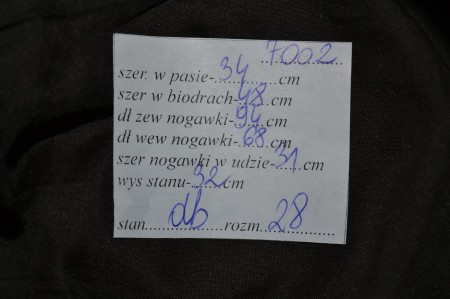 7002
szer. w pasie-34cm
szer w biodrach-48cm
dł zew nogawki-94cm
dł wew nogawki-68cm
szer nogawki w udzie-31cm
wys stanu-32cm
stan db rozm 28